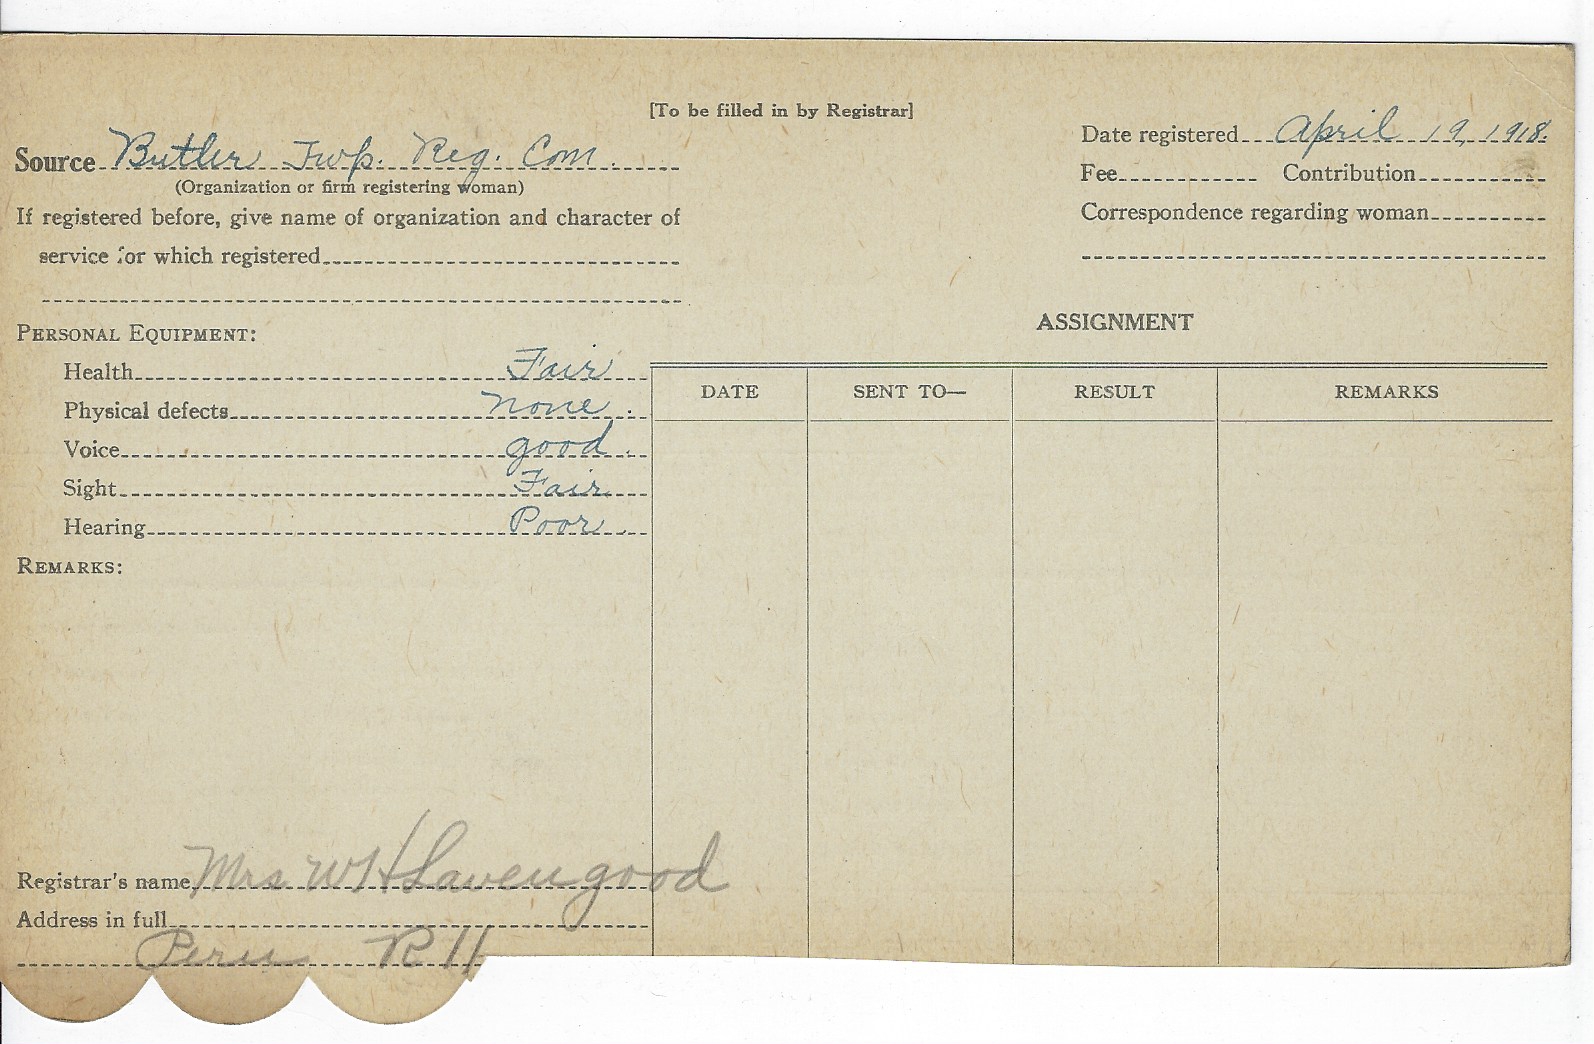 [To be filled in by Registrar]
Source Butler Twp. Reg. Com.
(Organization or firm registering woman)
If registered before, give name of organization and character of
service for which registered
Date registered April 19, 1918.
Fee Contribution
Correspondence regarding woman
PERSONAL EQUIPMENT:
Health Fair
Physical defects none.
Voice good.
Sight Fair
Hearing Poor.
REMARKS:
ASSIGNMENT
DATE SENT TO— RESULT REMARKS
Registrar's name Mrs W H Lavengood
Address in full
Peru R